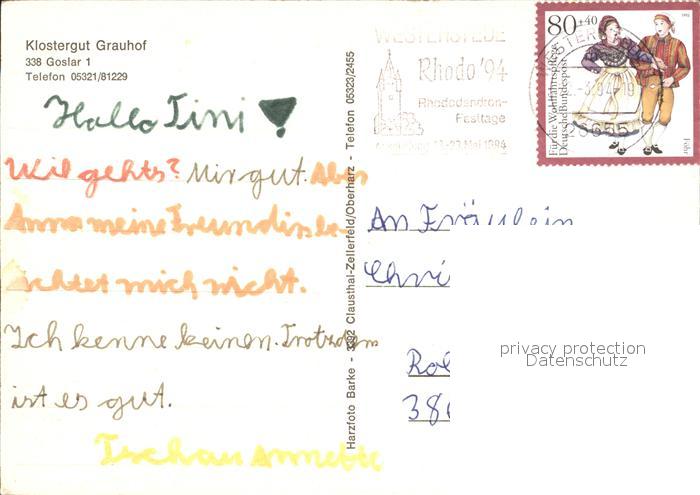 Klostergut Grauhof
338 Goslar 1
Telefon 05321/81229
Hallo Tini
Wil gehts? Mir gut. Aber
Anna meine Freundin be-
achtet mich nicht.
Ich kenne keinen. Trotzdem
ist es gut.
Tschau Annette
Harzfoto Barke - 3392 Clausthal-Zellerfeld/Oberharz - Telefon 05323/2455
WESTERSTEDE
Rhodo '94
Rhododendron-
Festtage
13-23 Mai 1994
80+40
1993
Für die Wohlfahrtspflege
Deutsche Bundespost
Föhr
26655
An Fräulein
Chri
Rol
38
privacy protection
Datenschutz